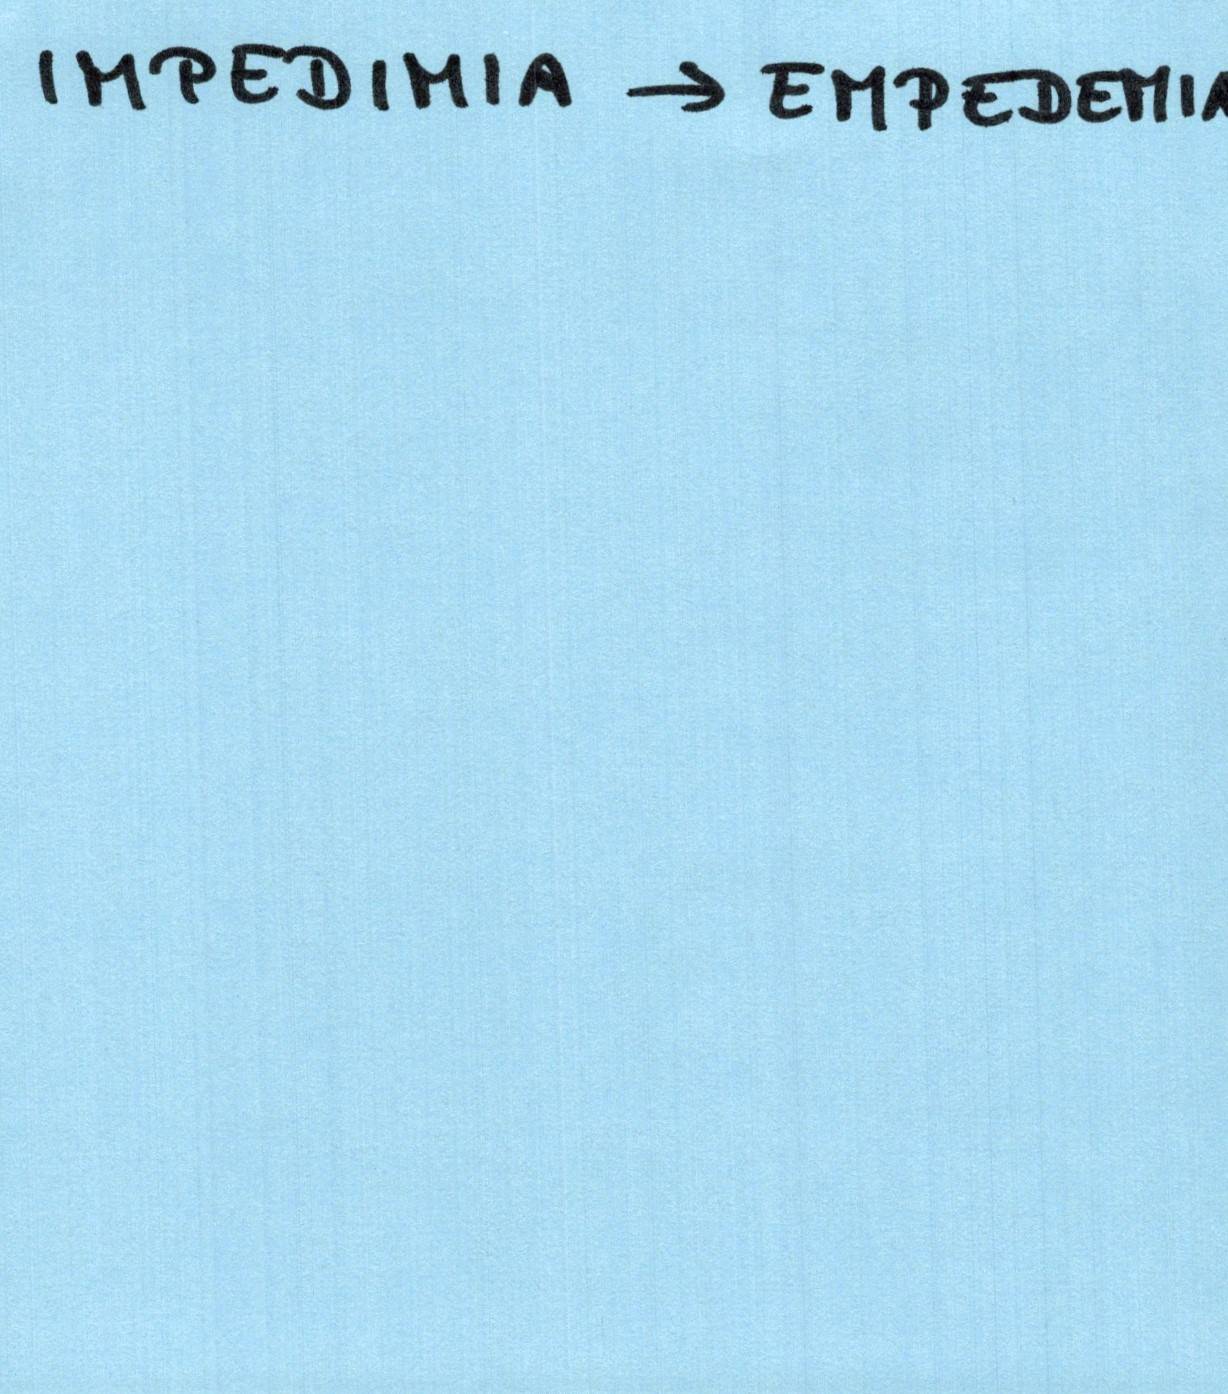 IMPEDIMIA → EMPEDEMIA